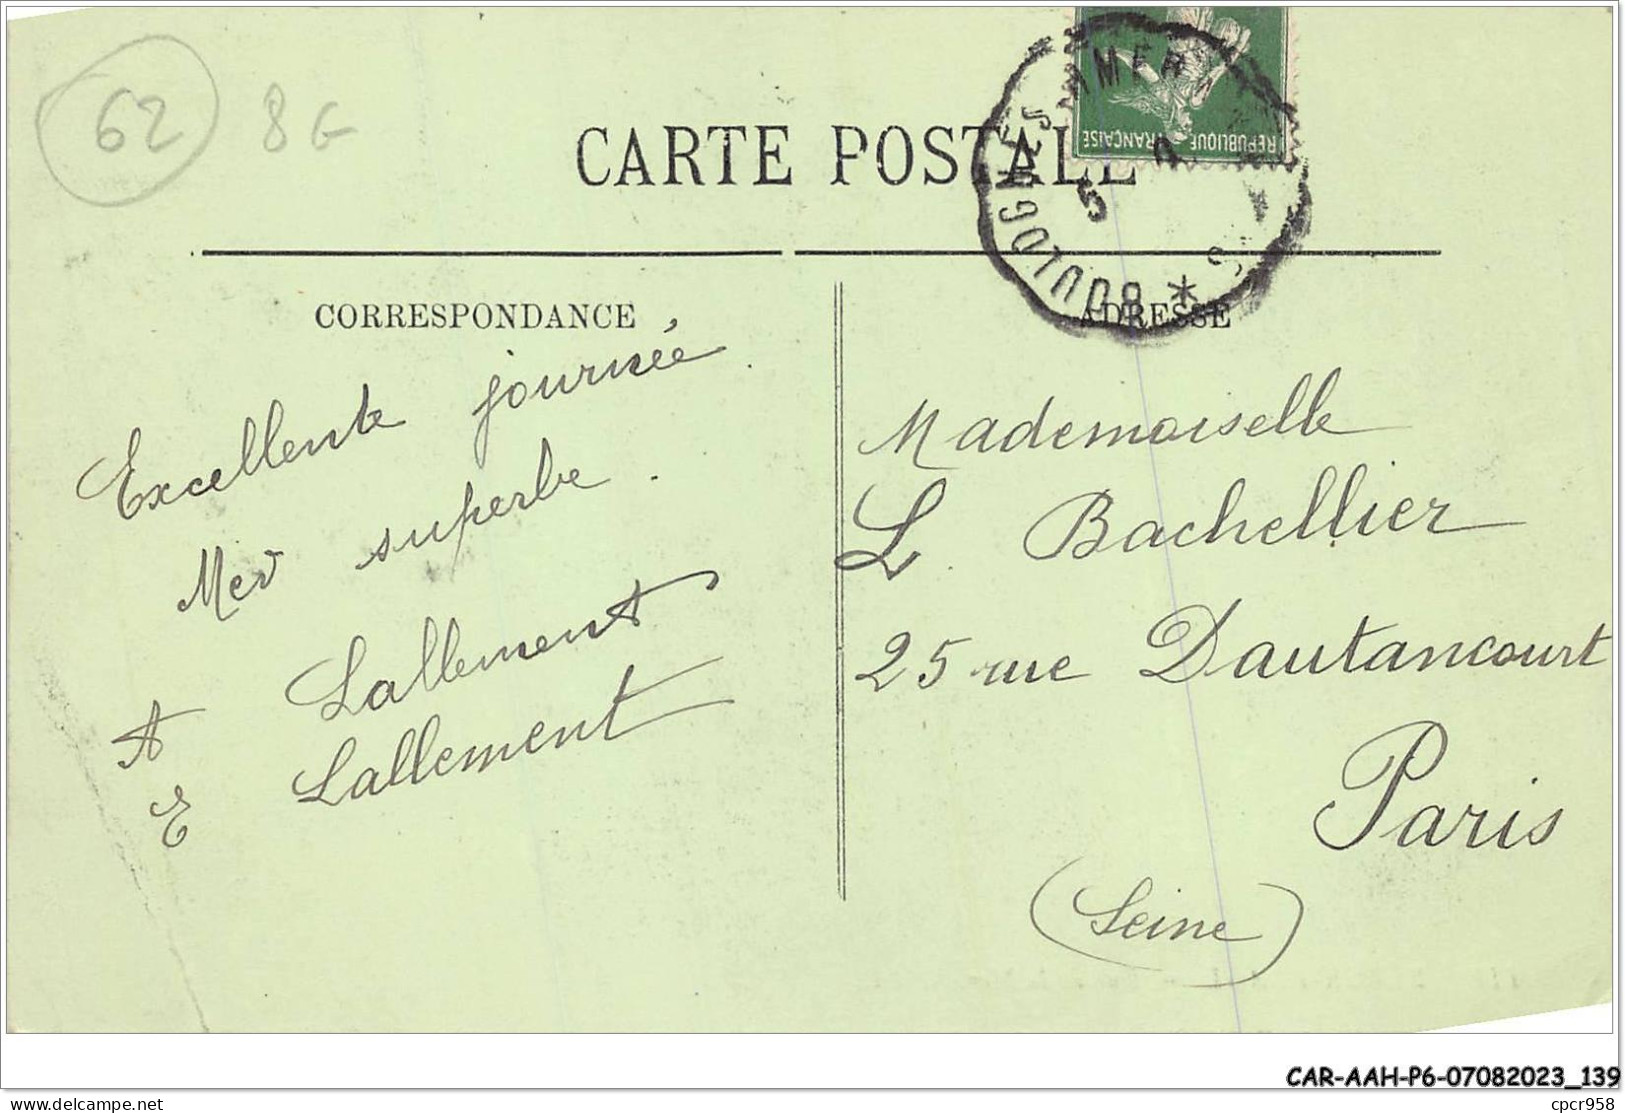 62 8G
CARTE POSTALE
RÉPUBLIQUE FRANÇAISE
BOULOGNE S MER
5
CORRESPONDANCE
ADRESSE
Excellente journée.
Mer superbe.
A Lallement
E Lallement
Mademoiselle
L. Bachellier
25 rue Dautancourt
Paris
(Seine)
CAR-AAH-P6-07082023_139
delcampe.net
cpcr958